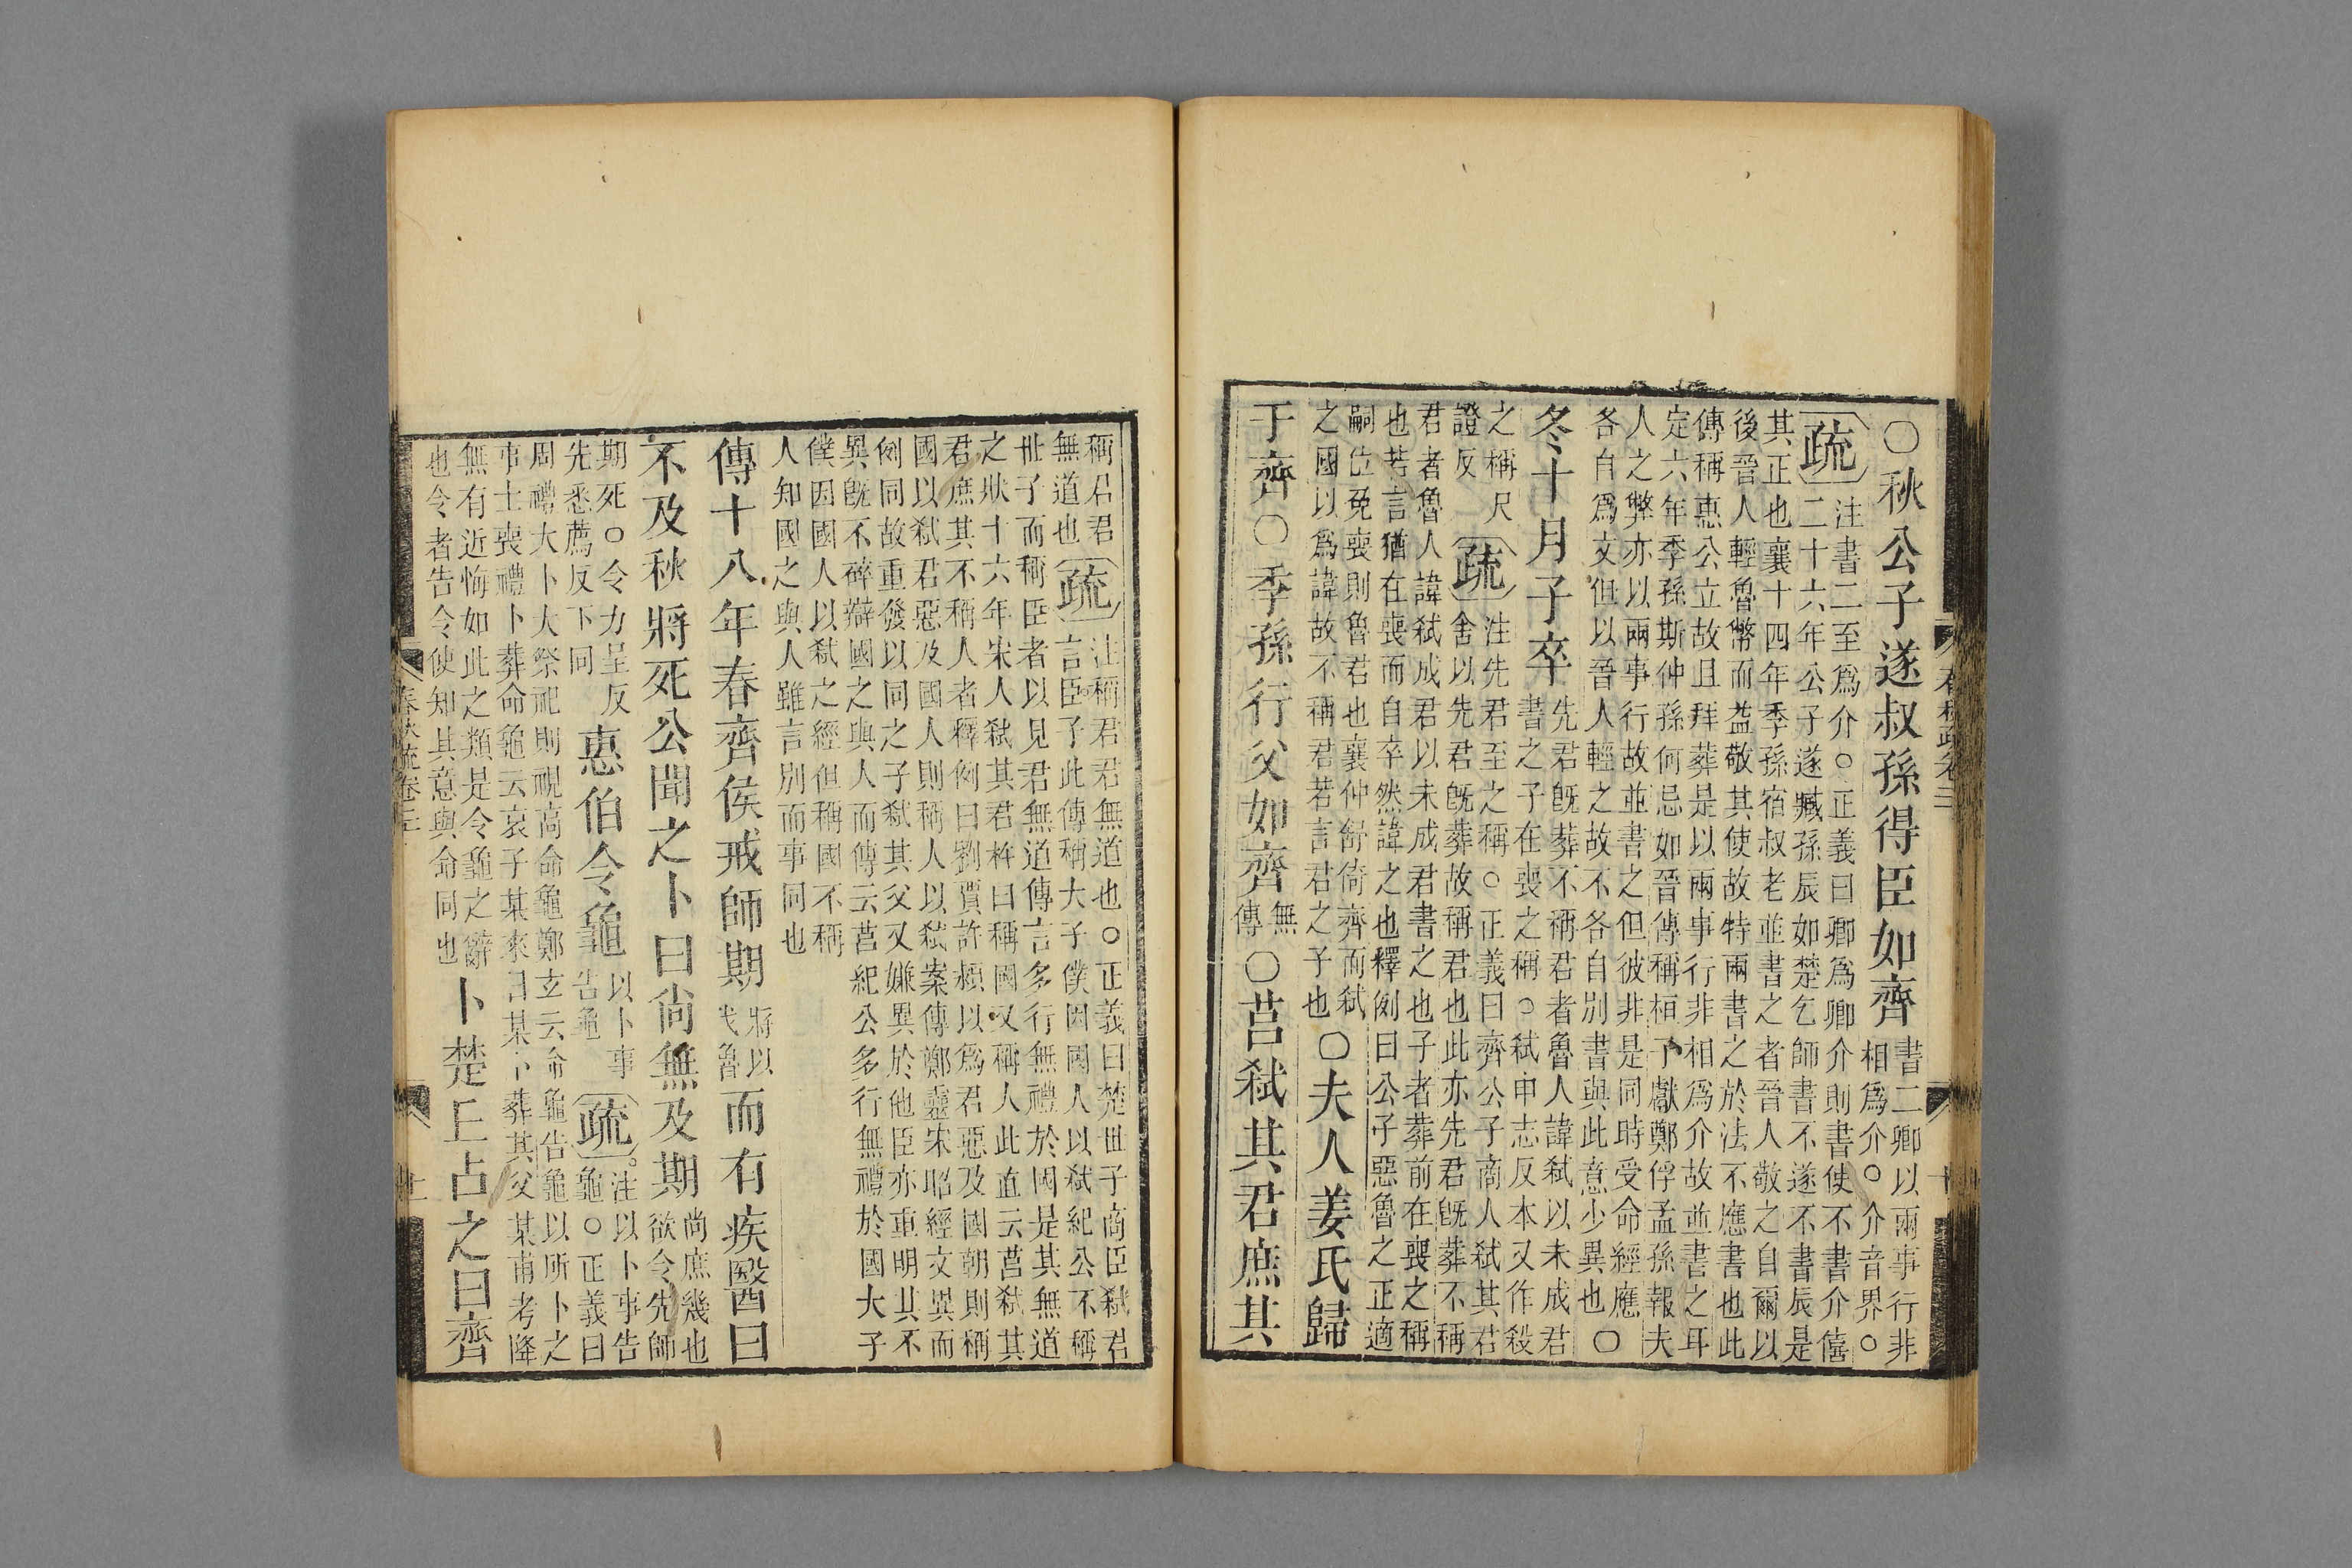 〇秋公子遂叔孫得臣如齊書二卿以兩事行非
相爲介〇介音界〇
疏注書二至爲介〇正義曰卿爲卿介則書使不書介僖
二十六年公子遂臧孫辰如楚乞師書不遂不書辰是
其正也襄十四年季孫宿叔老並書之者晉人敬之自爾以
後晉人輕魯幣而益敬其使故特兩書之於法不應書也此
傳稱惠公立故且拜葬是以兩事行非相爲介故並書之耳
定六年季孫斯仲孫何忌如晉傳稱桓子獻鄭俘孟孫報夫
人之幣亦以兩事行故並書之但彼非是同時受命經應
各自爲文但以晉人輕之故不各自別書與此意少異也〇
冬十月子卒先君旣葬不稱君者魯人諱弑以未成君
書之子在喪之稱〇弑申志反本又作殺
之稱尺
證反
疏注先君至之稱〇正義曰齊公子商人弑其君
舍以先君旣葬故稱君也此亦先君旣葬不稱
君者魯人諱弑成君以未成君書之也子者葬前在喪之稱
也若言猶在喪而自卒然諱之也釋例曰公子惡魯之正適
嗣位免喪則魯君也襄仲倚齊而弑
之國以爲諱故不稱君若言君之子也
〇夫人姜氏歸
于齊〇季孫行父如齊無
傳
〇莒弑其君庶其
春秋疏卷二
十
稱君君
無道也
疏注稱君君無道也〇正義曰楚世子商臣弑君
言臣子此傳稱大子僕因國人以弑紀公不稱
世子而稱臣者以見君無道傳言多行無禮於國是其無道
之狀十六年宋人弑其君杵臼稱國又稱人此直云莒弑其
君庶其不稱人者釋例曰劉賈許頴以爲君惡及國朝則稱
國以弑君惡及國人則稱人以弑案傳鄭靈宋昭經文異而
例同故重發以同之子弑其父又嫌異於他臣亦重明其不
異旣不碎辯國之與人而傳云莒紀公多行無禮於國大子
僕因國人以弑之經但稱國不稱
人知國之與人雖言別而事同也
傳十八年春齊侯戒師期將以
伐魯
而有疾醫曰
不及秋將死公聞之卜曰尙無及期尚庶幾也
欲令先師
期死〇令力呈反
先悉薦反下同
惠伯令龜以卜事
告龜
疏注以卜事告
龜〇正義曰
周禮大卜大祭祀則視高命龜鄭玄云命龜告龜以所卜之
事士喪禮卜葬命龜云哀子某來日某卜葬其父某甫考降
無有近悔如此之類是令龜之辭
也令者告令使知其意與命同也
卜楚丘占之曰齊
春秋疏卷二